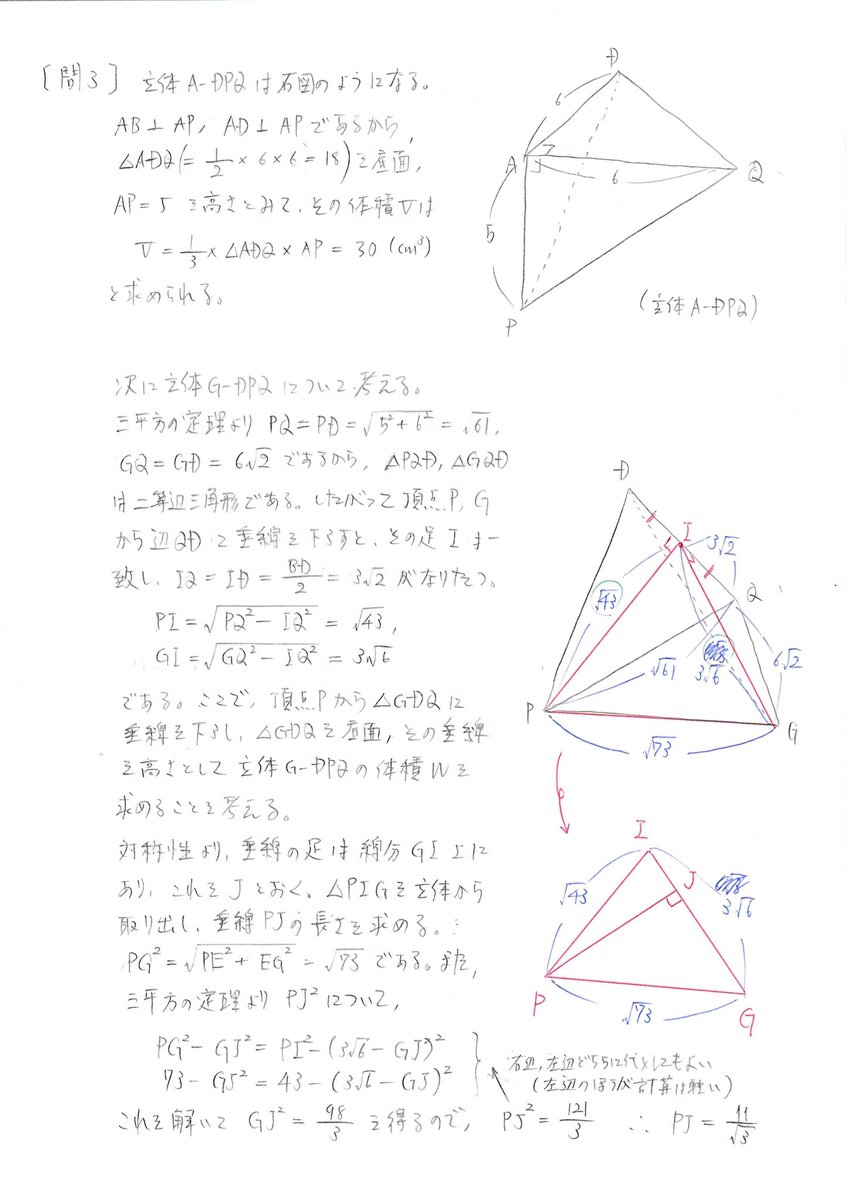 [問3] 立体A-DPQは右図のようになる。
AB⊥AP, AD⊥APであるから,
△ADQ(=1/2×6×6=18)を底面,
AP=5を高さとみて、その体積Vは
V=1/3×△ADQ×AP=30 (cm³)
と求められる。
D
6
A
6
Q
5
P
(立体A-DPQ)
次に立体G-DPQについて考える。
三平方の定理より PQ=PD=√(5²+6²)=√61,
GQ=GD=6√2であるから, △PQD, △GQD
は二等辺三角形である。したがって頂点P, G
から辺QDに垂線を下ろすと、その足Iは一
致し、IQ=ID=BD/2=3√2がなりたつ。
PI=√(PQ²-IQ²)=√43,
GI=√(GQ²-IQ²)=3√6
である。ここで, 頂点Pから△GDQに
垂線を下ろし, △GDQを底面, その垂線
を高さとして立体G-DPQの体積Wを
求めることを考える。
D
I
3√2
Q
√43
√61
3√6
6√2
P
G
√73
対称性より, 垂線の足は線分GI上に
あり, これをJとおく。△PIGを立体から
取り出し, 垂線PJの長さを求める。
PG²=√(PE²+EG²)=√73である。また,
三平方の定理よりPJ²について,
I
√43
J
3√6
P
√73
G
PG²-GJ²=PI²-(3√6-GJ)²
73-GJ²=43-(3√6-GJ)²
右辺, 左辺どちらに代入してもよい
(左辺のほうが計算は軽い)
これを解いて GJ²=98/3 を得るので, PJ²=121/3 ∴ PJ=11/√3